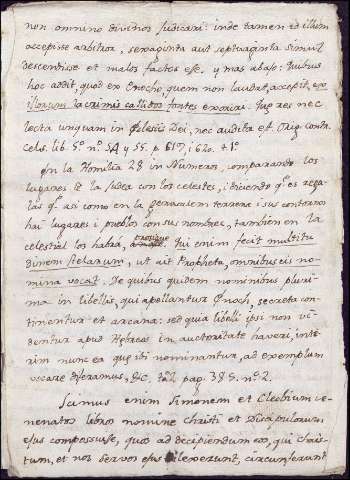 non omnino divinos judicari: inde tamen et illum
accepisse arbitror, sexaginta aut septuaginta simul
descendisse et malos factos esse. y mas abaxo: Quibus
hoc addit, quod ex Enocho, quem non laudat, accepit, ex
illorum lacrimis callidos fontes exoriri. Quæ res nec
lecta unquam in Eglesiis Dei, nec audita est. Orig. contr.
Cels. lib. 5º nº 54 y 55. p. 619, i 620. tº 1º
En la Homilia 28 in Numeros, comparando los
lugares de la Judea con los celestes, i diciendo qe es regu-
lar qe asi como en la gerusalem terrena i sus contornos
hai lugares i pueblos con sus nombres, tambien en la
celestial los habrá, prosigue Qui enim fecit multitu
dinem stelarum, ut ait Propheta, omnibus eis no-
mina vocat. De quibus quidem nominibus pluri-
ma in libellis, qui apellantur Enoch, secreta con-
tinentur et arcana: sed quia libelli ipsi non vi-
dentur apud Hebreos in auctoritate haveri, inte-
rim nunc ea que ibi nominantur, ad exemplum
vocare diferamus, &c. pag. 385. nº 2.
Scimus enim Simonem et Cleobium ve-
nenatos libros nomine Christi et Discipulorum
ejus composuisse, quos ad decipiendum eos, qui Chris-
tum, et nos servos ejus dilexerunt, circunferunt